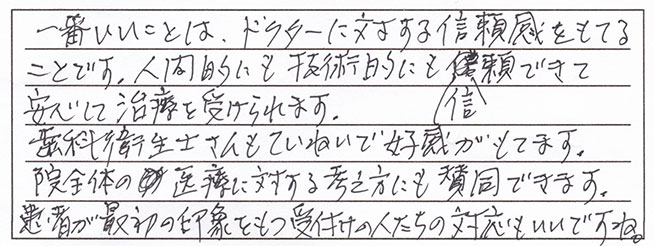 一番いいことは、ドクターに対する信頼感をもてる
ことです。人間的にも技術的にも信頼できて
安心して治療を受けられます。
歯科衛生士さんもていねいで好感がもてます。
院全体の医療に対する考え方にも賛同できます。
患者が最初の印象をもつ受付けの人たちの対応もいいですね。